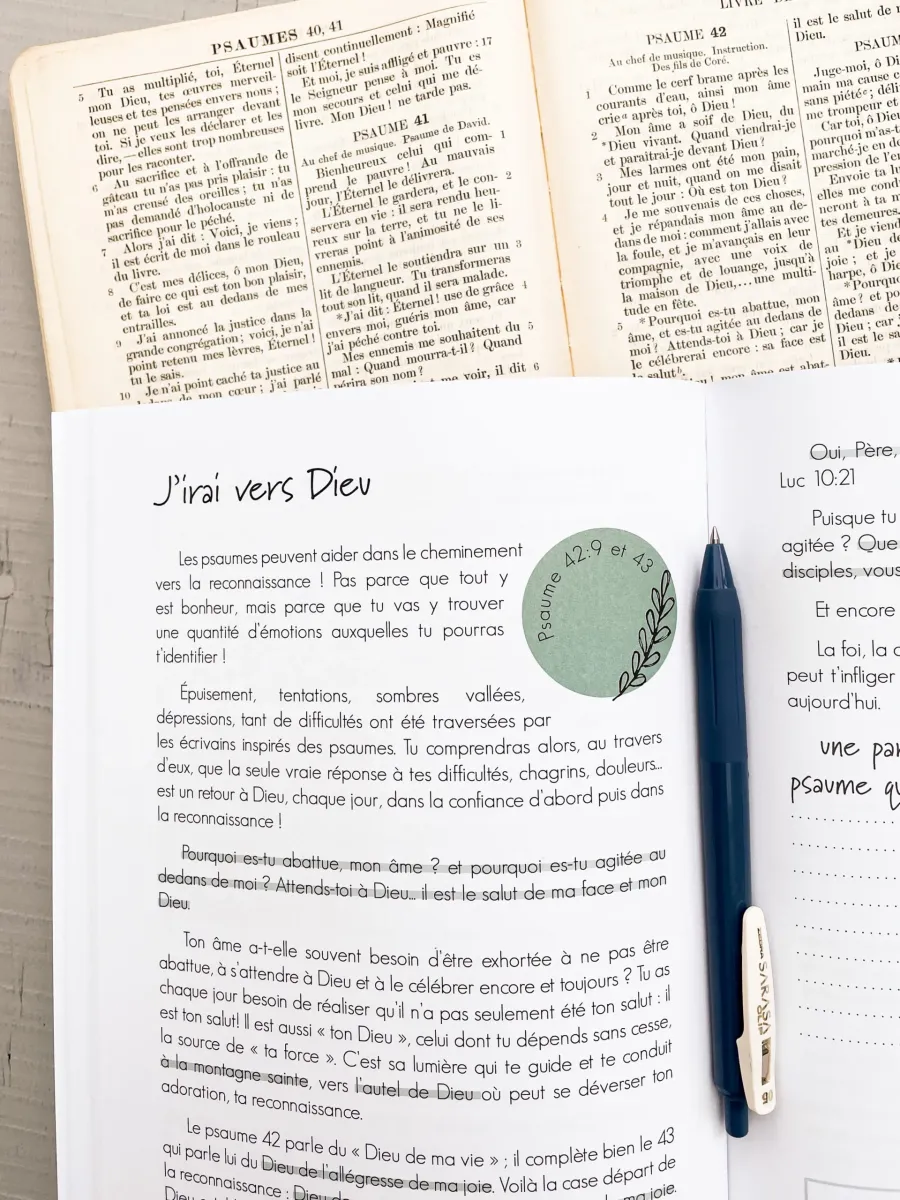 PSAUMES 40, 41
5 Tu as multiplié, toi, Éternel
mon Dieu, tes œuvres merveil-
leuses et tes pensées envers nous ;
on ne peut les arranger devant
toi. Si je veux les déclarer et les
dire,—elles sont trop nombreuses
pour les raconter.
6 Au sacrifice et à l'offrande de
gâteau tu n'as pas pris plaisir : tu
m'as creusé des oreilles ; tu n'as
pas demandé d'holocauste ni de
sacrifice pour le péché.
7 Alors j'ai dit : Voici, je viens ;
il est écrit de moi dans le rouleau
du livre.
8 C'est mes délices, ô mon Dieu,
de faire ce qui est ton bon plaisir,
et ta loi est au dedans de mes
entrailles.
9 J'ai annoncé la justice dans la
grande congrégation ; voici, je n'ai
point retenu mes lèvres, Éternel !
tu le sais.
10 Je n'ai point caché ta justice au
dedans de mon cœur ; j'ai parlé
disent continuellement : Magnifié
soit l'Éternel !
Et moi, je suis affligé et pauvre : 17
le Seigneur pense à moi. Tu es
mon secours et celui qui me dé-
livre. Mon Dieu ! ne tarde pas.
PSAUME 41
Au chef de musique. Psaume de David.
Bienheureux celui qui com- 1
prend le pauvre ! Au mauvais
jour, l'Éternel le délivrera.
L'Éternel le gardera, et le con- 2
servera en vie : il sera rendu heu-
reux sur la terre, et tu ne le li-
vreras point à l'animosité de ses
ennemis.
L'Éternel le soutiendra sur un 3
lit de langueur. Tu transformeras
tout son lit, quand il sera malade.
*J'ai dit : Éternel ! use de grâce 4
envers moi, guéris mon âme, car
j'ai péché contre toi.
Mes ennemis me souhaitent du 5
mal : Quand mourra-t-il ? Quand
périra son nom ?
me voir, il dit 6
PSAUME 42
Au chef de musique. Instruction.
Des fils de Coré.
1 Comme le cerf brame après les
courants d'eau, ainsi mon âme
crie a après toi, ô Dieu !
2 Mon âme a soif de Dieu, du
*Dieu vivant. Quand viendrai-je
et paraîtrai-je devant Dieu ?
3 Mes larmes ont été mon pain,
jour et nuit, quand on me disait
tout le jour : Où est ton Dieu ?
4 Je me souviens de ces choses,
et je répandais mon âme au de-
dans de moi : comment j'allais avec
la foule, et je m'avançais en leur
compagnie, avec une voix de
triomphe et de louange, jusqu'à
la maison de Dieu,... une multi-
tude en fête.
5 *Pourquoi es-tu abattue, mon
âme, et es-tu agitée au dedans de
moi ? Attends-toi à Dieu ; car je
le célébrerai encore : sa face est
le salut b.
mon âme est abat-
il est le salut de
Dieu.
Juge-moi, ô Di
main ma cause c
sans piété c ; déli
me trompeur et
Car toi, ô Die
pourquoi m'as-t
marché-je en de
pression de l'en
Envoie ta lu
elles me cond
neront à ta m
tes demeures.
Et je viend
au *Dieu de
joie ; et je
harpe, ô Die
*Pourquo
âme ? et po
dedans de
Dieu ; car
il est le sa
Dieu.
J'irai vers Dieu
Psaume 42:9 et 43
Les psaumes peuvent aider dans le cheminement
vers la reconnaissance ! Pas parce que tout y
est bonheur, mais parce que tu vas y trouver
une quantité d'émotions auxquelles tu pourras
t'identifier !
Épuisement, tentations, sombres vallées,
dépressions, tant de difficultés ont été traversées par
les écrivains inspirés des psaumes. Tu comprendras alors, au travers
d'eux, que la seule vraie réponse à tes difficultés, chagrins, douleurs...
est un retour à Dieu, chaque jour, dans la confiance d'abord puis dans
la reconnaissance !
Pourquoi es-tu abattue, mon âme ? et pourquoi es-tu agitée au
dedans de moi ? Attends-toi à Dieu... il est le salut de ma face et mon
Dieu.
Ton âme a-t-elle souvent besoin d'être exhortée à ne pas être
abattue, à s'attendre à Dieu et à le célébrer encore et toujours ? Tu as
chaque jour besoin de réaliser qu'il n'a pas seulement été ton salut : il
est ton salut! Il est aussi « ton Dieu », celui dont tu dépends sans cesse,
la source de « ta force ». C'est sa lumière qui te guide et te conduit
à la montagne sainte, vers l'autel de Dieu où peut se déverser ton
adoration, ta reconnaissance.
Le psaume 42 parle du « Dieu de ma vie » ; il complète bien le 43
qui parle lui du Dieu de l'allégresse de ma joie. Voilà la case départ de
la reconnaissance :
ma joie.
Oui, Père,
Luc 10:21
Puisque tu
agitée ? Que
disciples, vous
Et encore
La foi, la c
peut t'infliger
aujourd'hui.
une par
psaume qu
SARASA